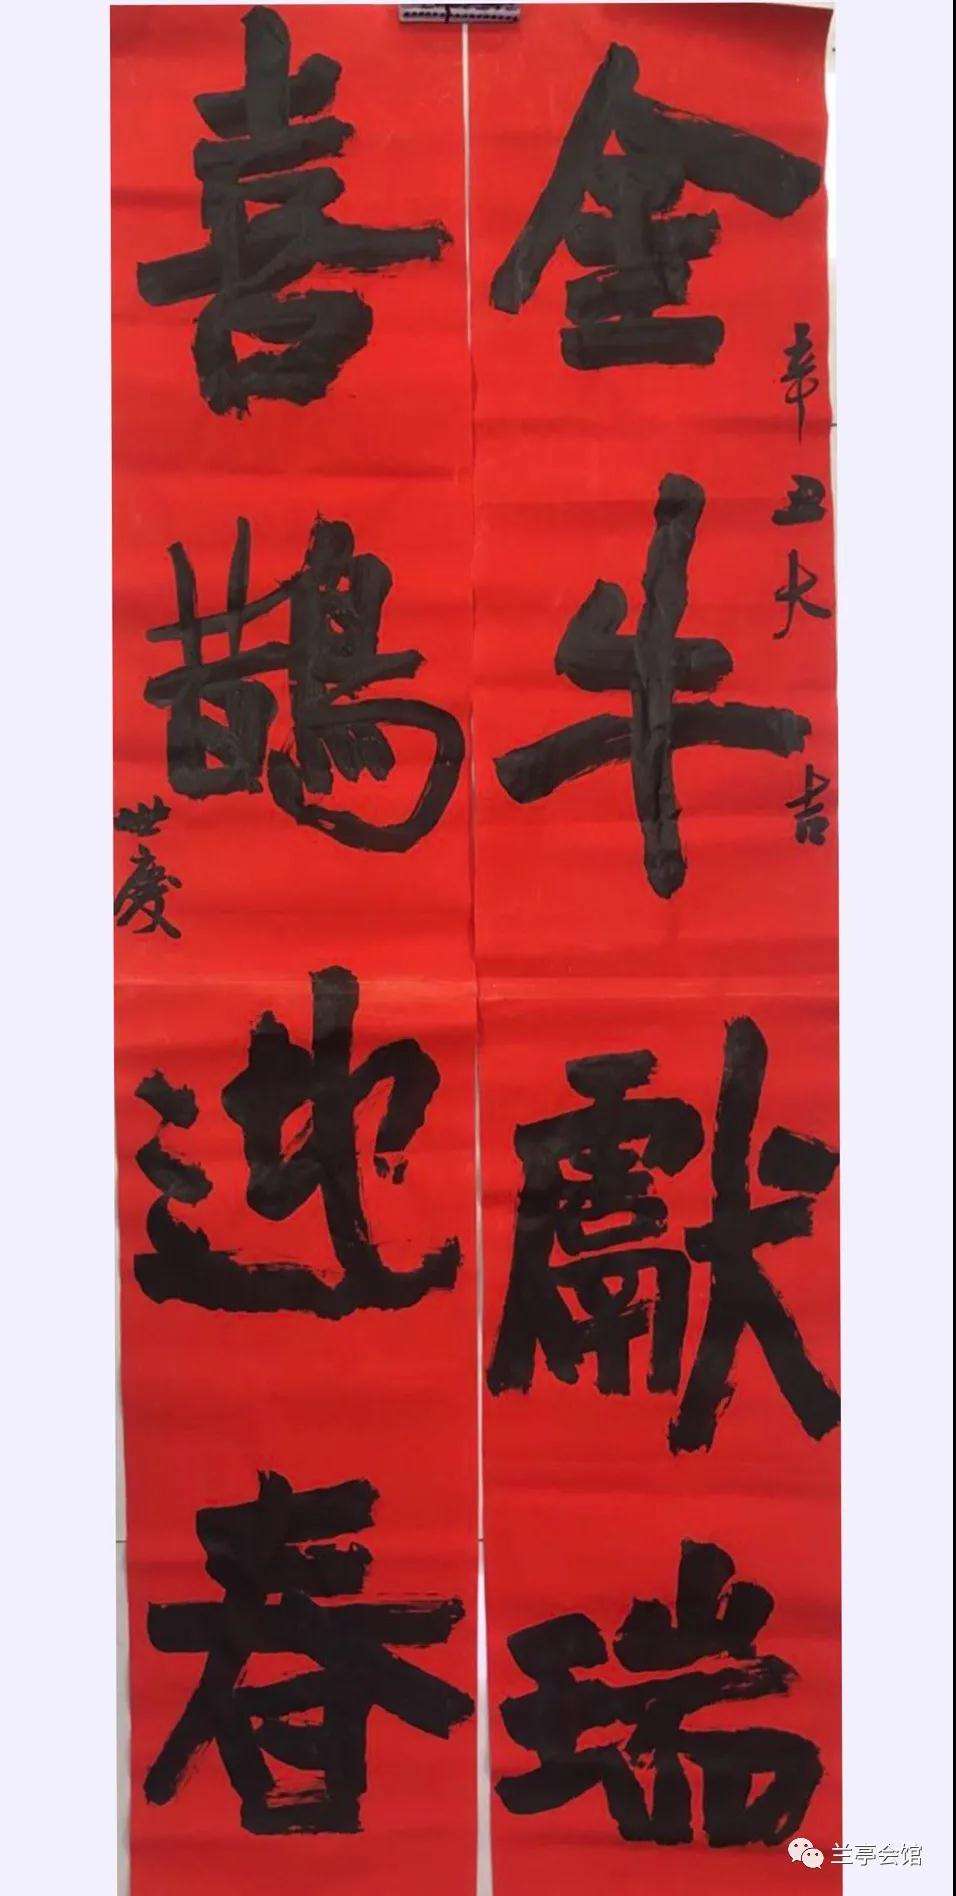 金牛獻瑞
辛丑大吉
喜鵲迎春
世慶
兰亭会馆